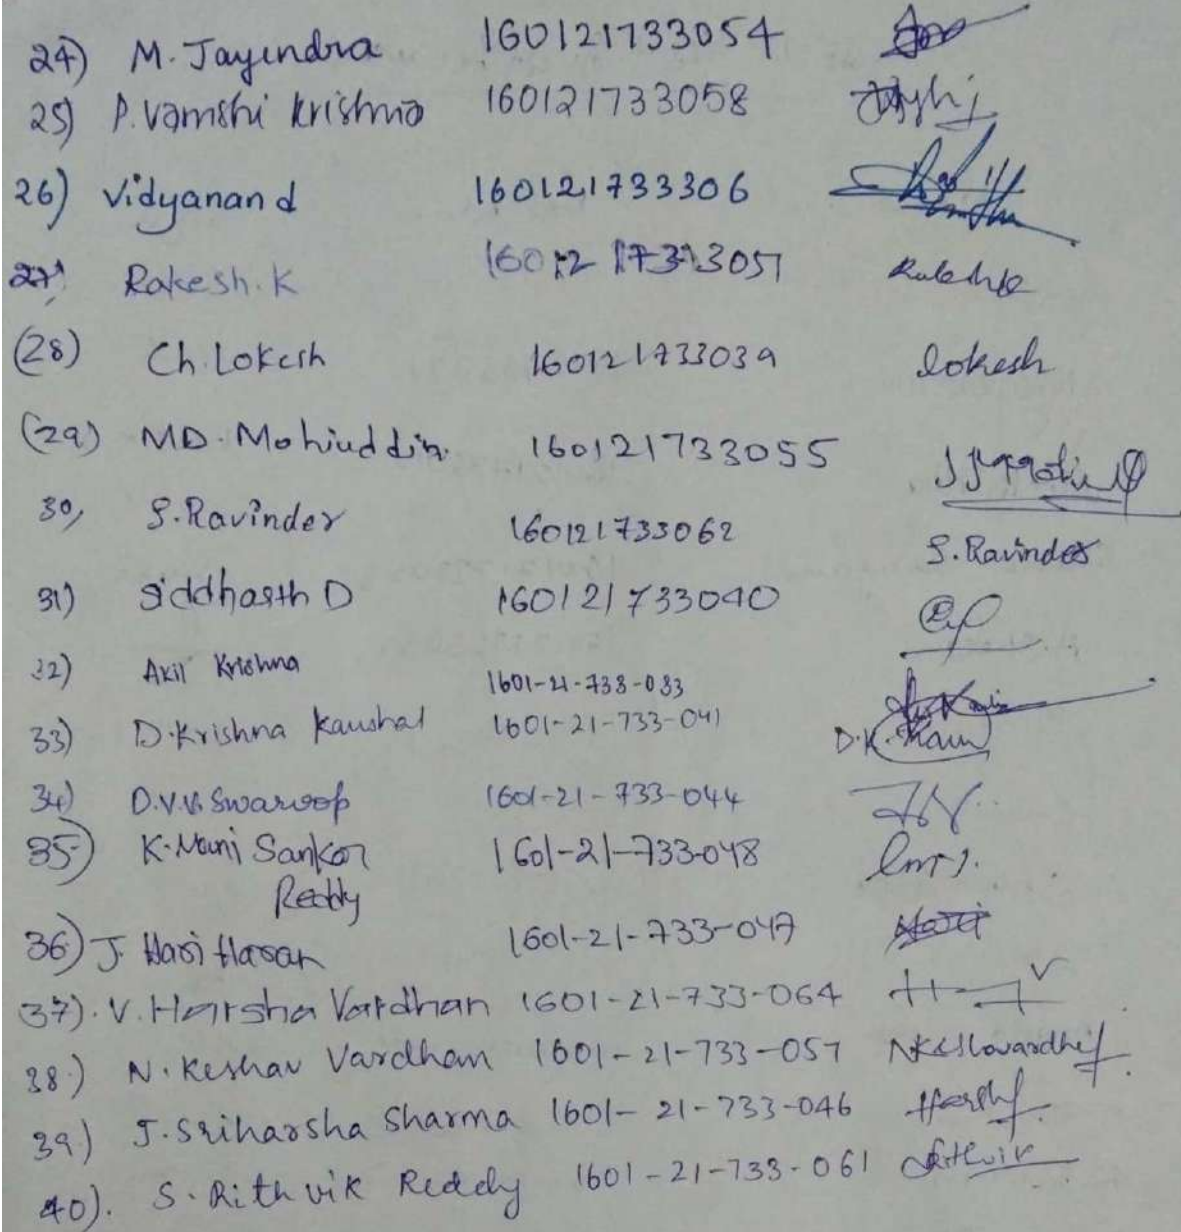 24) M. Jayendra 160121733054
25) P. Vamshi Krishna 160121733058
26) Vidyanand 160121733306
27) Rakesh. K 160121733051 Rakesh K
(28) Ch. Lokesh 160121733039 lokesh
(29) MD. Mohiuddin. 160121733055
30, S. Ravinder 160121733062 S. Ravinder
31) Siddharth D 160121733040
32) Akil Krishna 1601-21-733-033
33) D. Krishna Kaushal 1601-21-733-041 D.K.
34) D.V.V. Swaroop 1601-21-733-044
35) K. Mani Sankar 1601-21-733-048
Reddy
36) J. Hari Haran 1601-21-733-047 Hari
37). V. Harsha Vardhan 1601-21-733-064
38.) N. Keshav Vardhan 1601-21-733-057
39.) J. Sriharsha Sharma 1601-21-733-046
40). S. Rithvik Reddy 1601-21-733-061 Rithvik